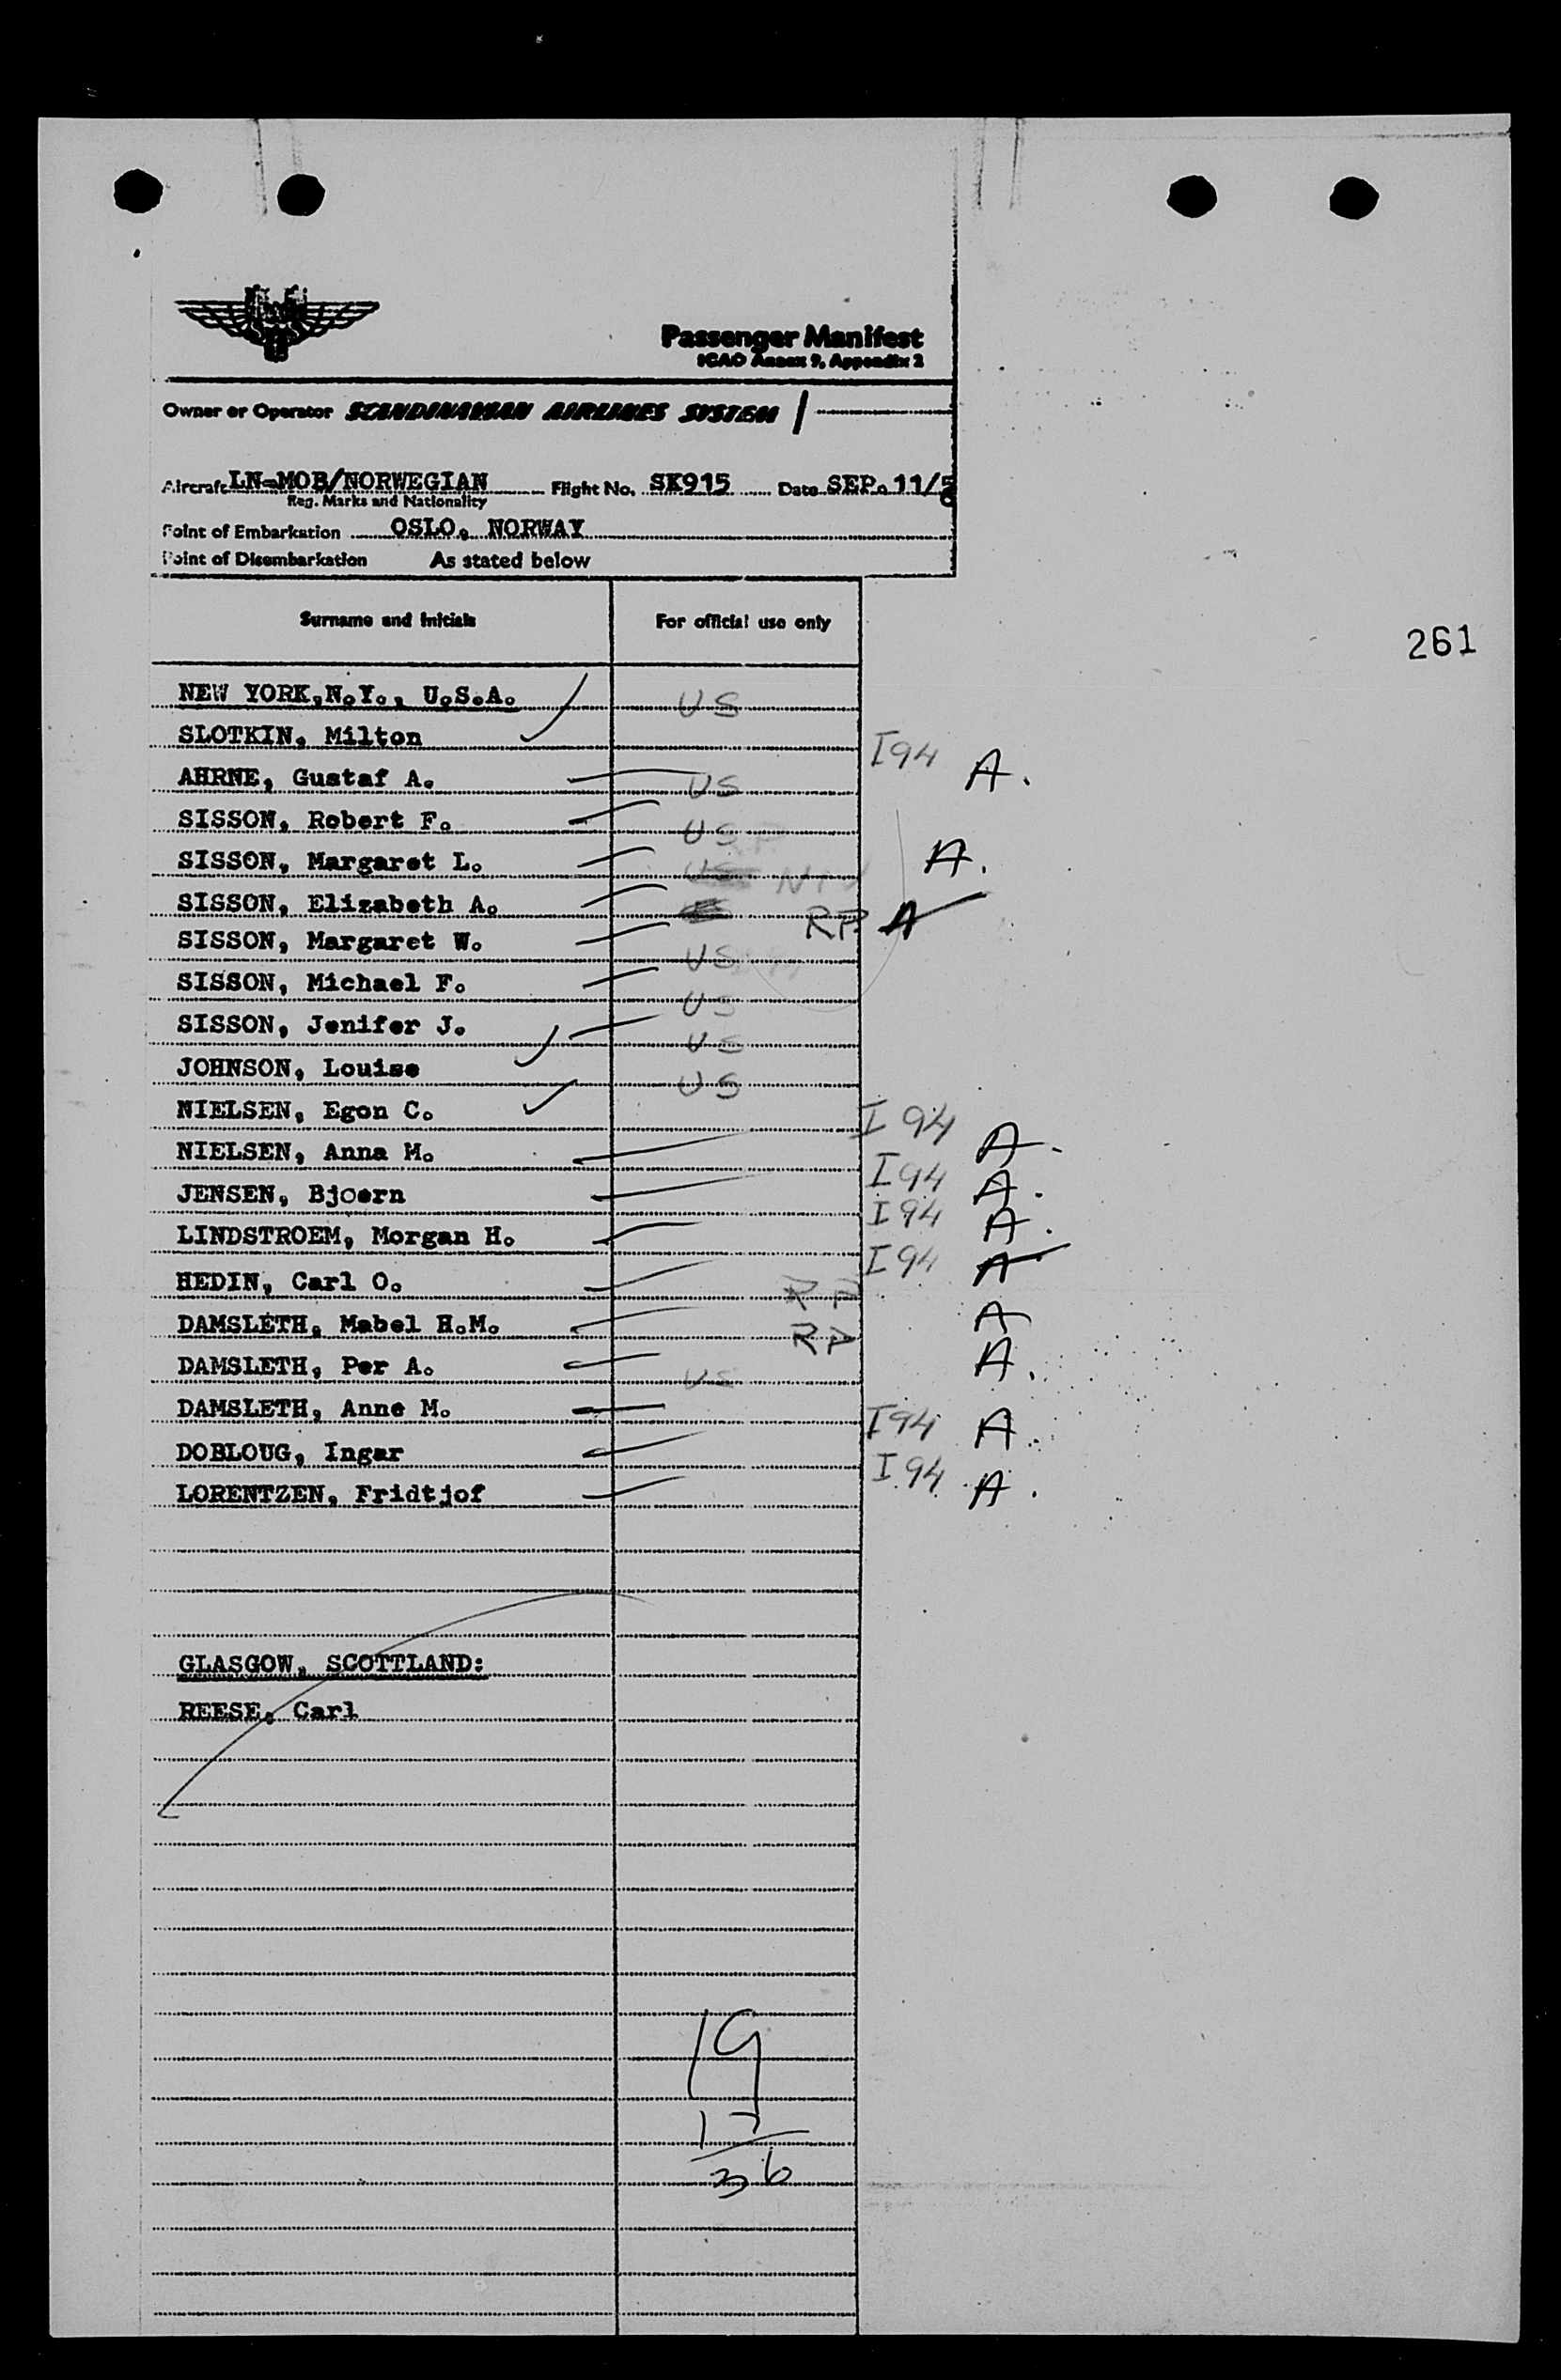 Passenger Manifest
ICAO Annex 9, Appendix 2
Owner or Operator SCANDINAVIAN AIRLINES SYSTEM
Aircraft LN-MOB/NORWEGIAN Flight No. SK915 Date SEP. 11/5
Reg. Marks and Nationality
Point of Embarkation OSLO, NORWAY
Point of Disembarkation As stated below
Surname and Initials For official use only
261
NEW YORK,N.Y., U.S.A. US
SLOTKIN, Milton I94 A.
AHRNE, Gustaf A. US
SISSON, Robert F. US
SISSON, Margaret L. A.
SISSON, Elizabeth A. RP A
SISSON, Margaret W. US
SISSON, Michael F. US
SISSON, Jenifer J. US
JOHNSON, Louise US
NIELSEN, Egon C. I94 A.
NIELSEN, Anna M. I94 A.
JENSEN, Bjoern I94 A.
LINDSTROEM, Morgan H. I94 A
HEDIN, Carl O. RP A
DAMSLETH, Mabel H.M. RP A.
DAMSLETH, Per A. US
DAMSLETH, Anne M. I94 A
DOBLOUG, Ingar I94 A.
LORENTZEN, Fridtjof
GLASGOW, SCOTTLAND:
REESE, Carl
19
17
36